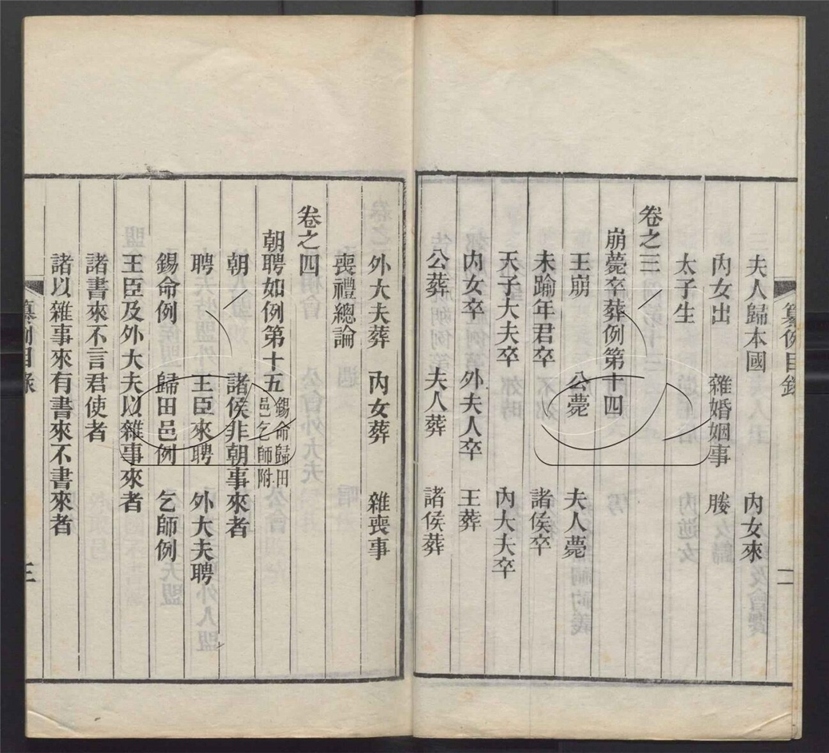 纂例目錄 二
夫人歸本國 內女來
內女出 雜婚姻事 媵
太子生
卷之三
崩薨卒葬例第十四
王崩 公薨 夫人薨
未踰年君卒 諸侯卒
天子大夫卒 內大夫卒
內女卒 外夫人卒 王葬
公葬 夫人葬 諸侯葬
外大夫葬 內女葬 雜喪事
喪禮總論
卷之四
朝聘如例第十五 錫命歸田邑乞師附
朝 諸侯非朝事來者
聘 王臣來聘 外大夫聘
錫命例 歸田邑例 乞師例
王臣及外大夫以雜事來者
諸書來不言君使者
諸以雜事來有書來不書來者
纂例目錄 三